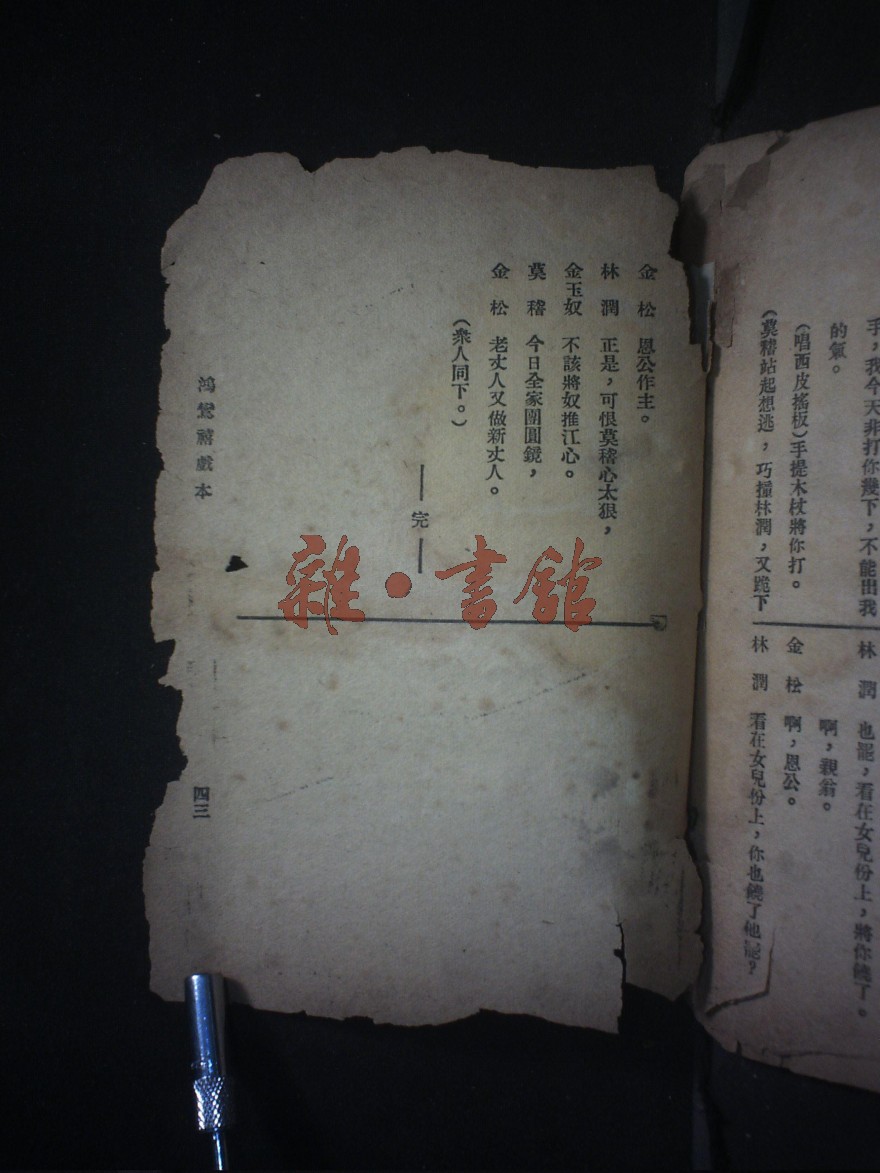 手，我今天非打你幾下，不能出我
的氣。
（唱西皮搖板）手提木杖將你打。
（莫稽站起想逃，巧撞林潤，又跪下
林　潤　也罷，看在女兒份上，將你饒了。
啊，親翁。
金　松　啊，恩公。
林　潤　看在女兒份上，你也饒了他罷？
金　松　恩公作主。
林　潤　正是，可恨莫稽心太狠，
金玉奴　不該將奴推江心。
莫　稽　今日全家團圓鏡，
金　松　老丈人又做新丈人。
（衆人同下。）
——完——
鴻鸞禧戲本
四三
雜·書館